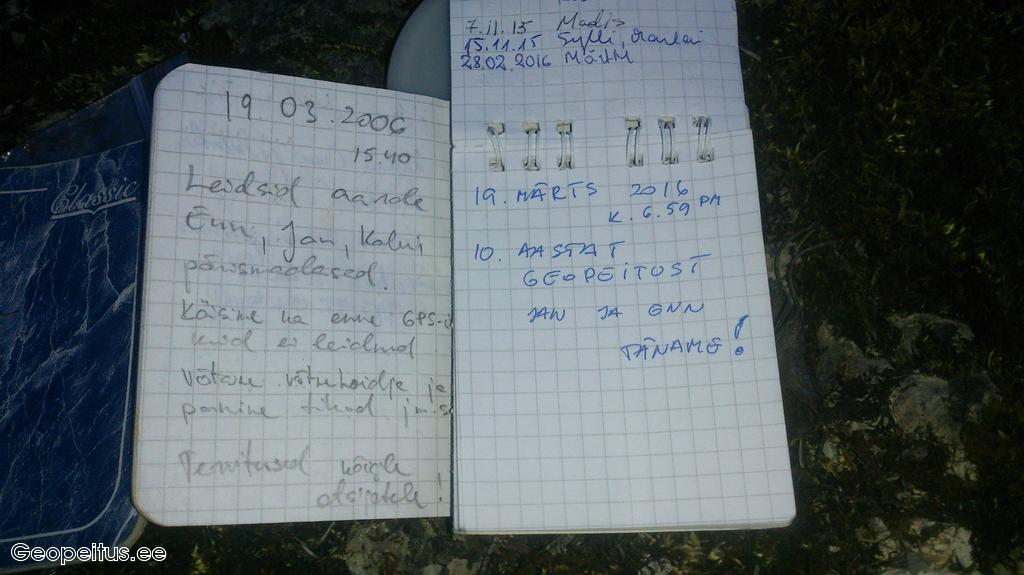 Classic
19.03.2006
15.40
Leidsid aarde
Enn, Jan, Kalmi
pärismaalased.
Käisime ka enne GPS-i
kuid ei leidnud.
Võtsime võtmehoidja ja
panime tikud jm.s
Tervitused kõigile
otsijatele!
7.11.15 Madis
15.11.15 Sylli,
28.02.2016 MÕMM
19. MÄRTS 2016
K. 6.59 PM
10. AASTAT
GEOPEITUST
JAN JA ENN
TÄNAME!
Geopeitus.ee